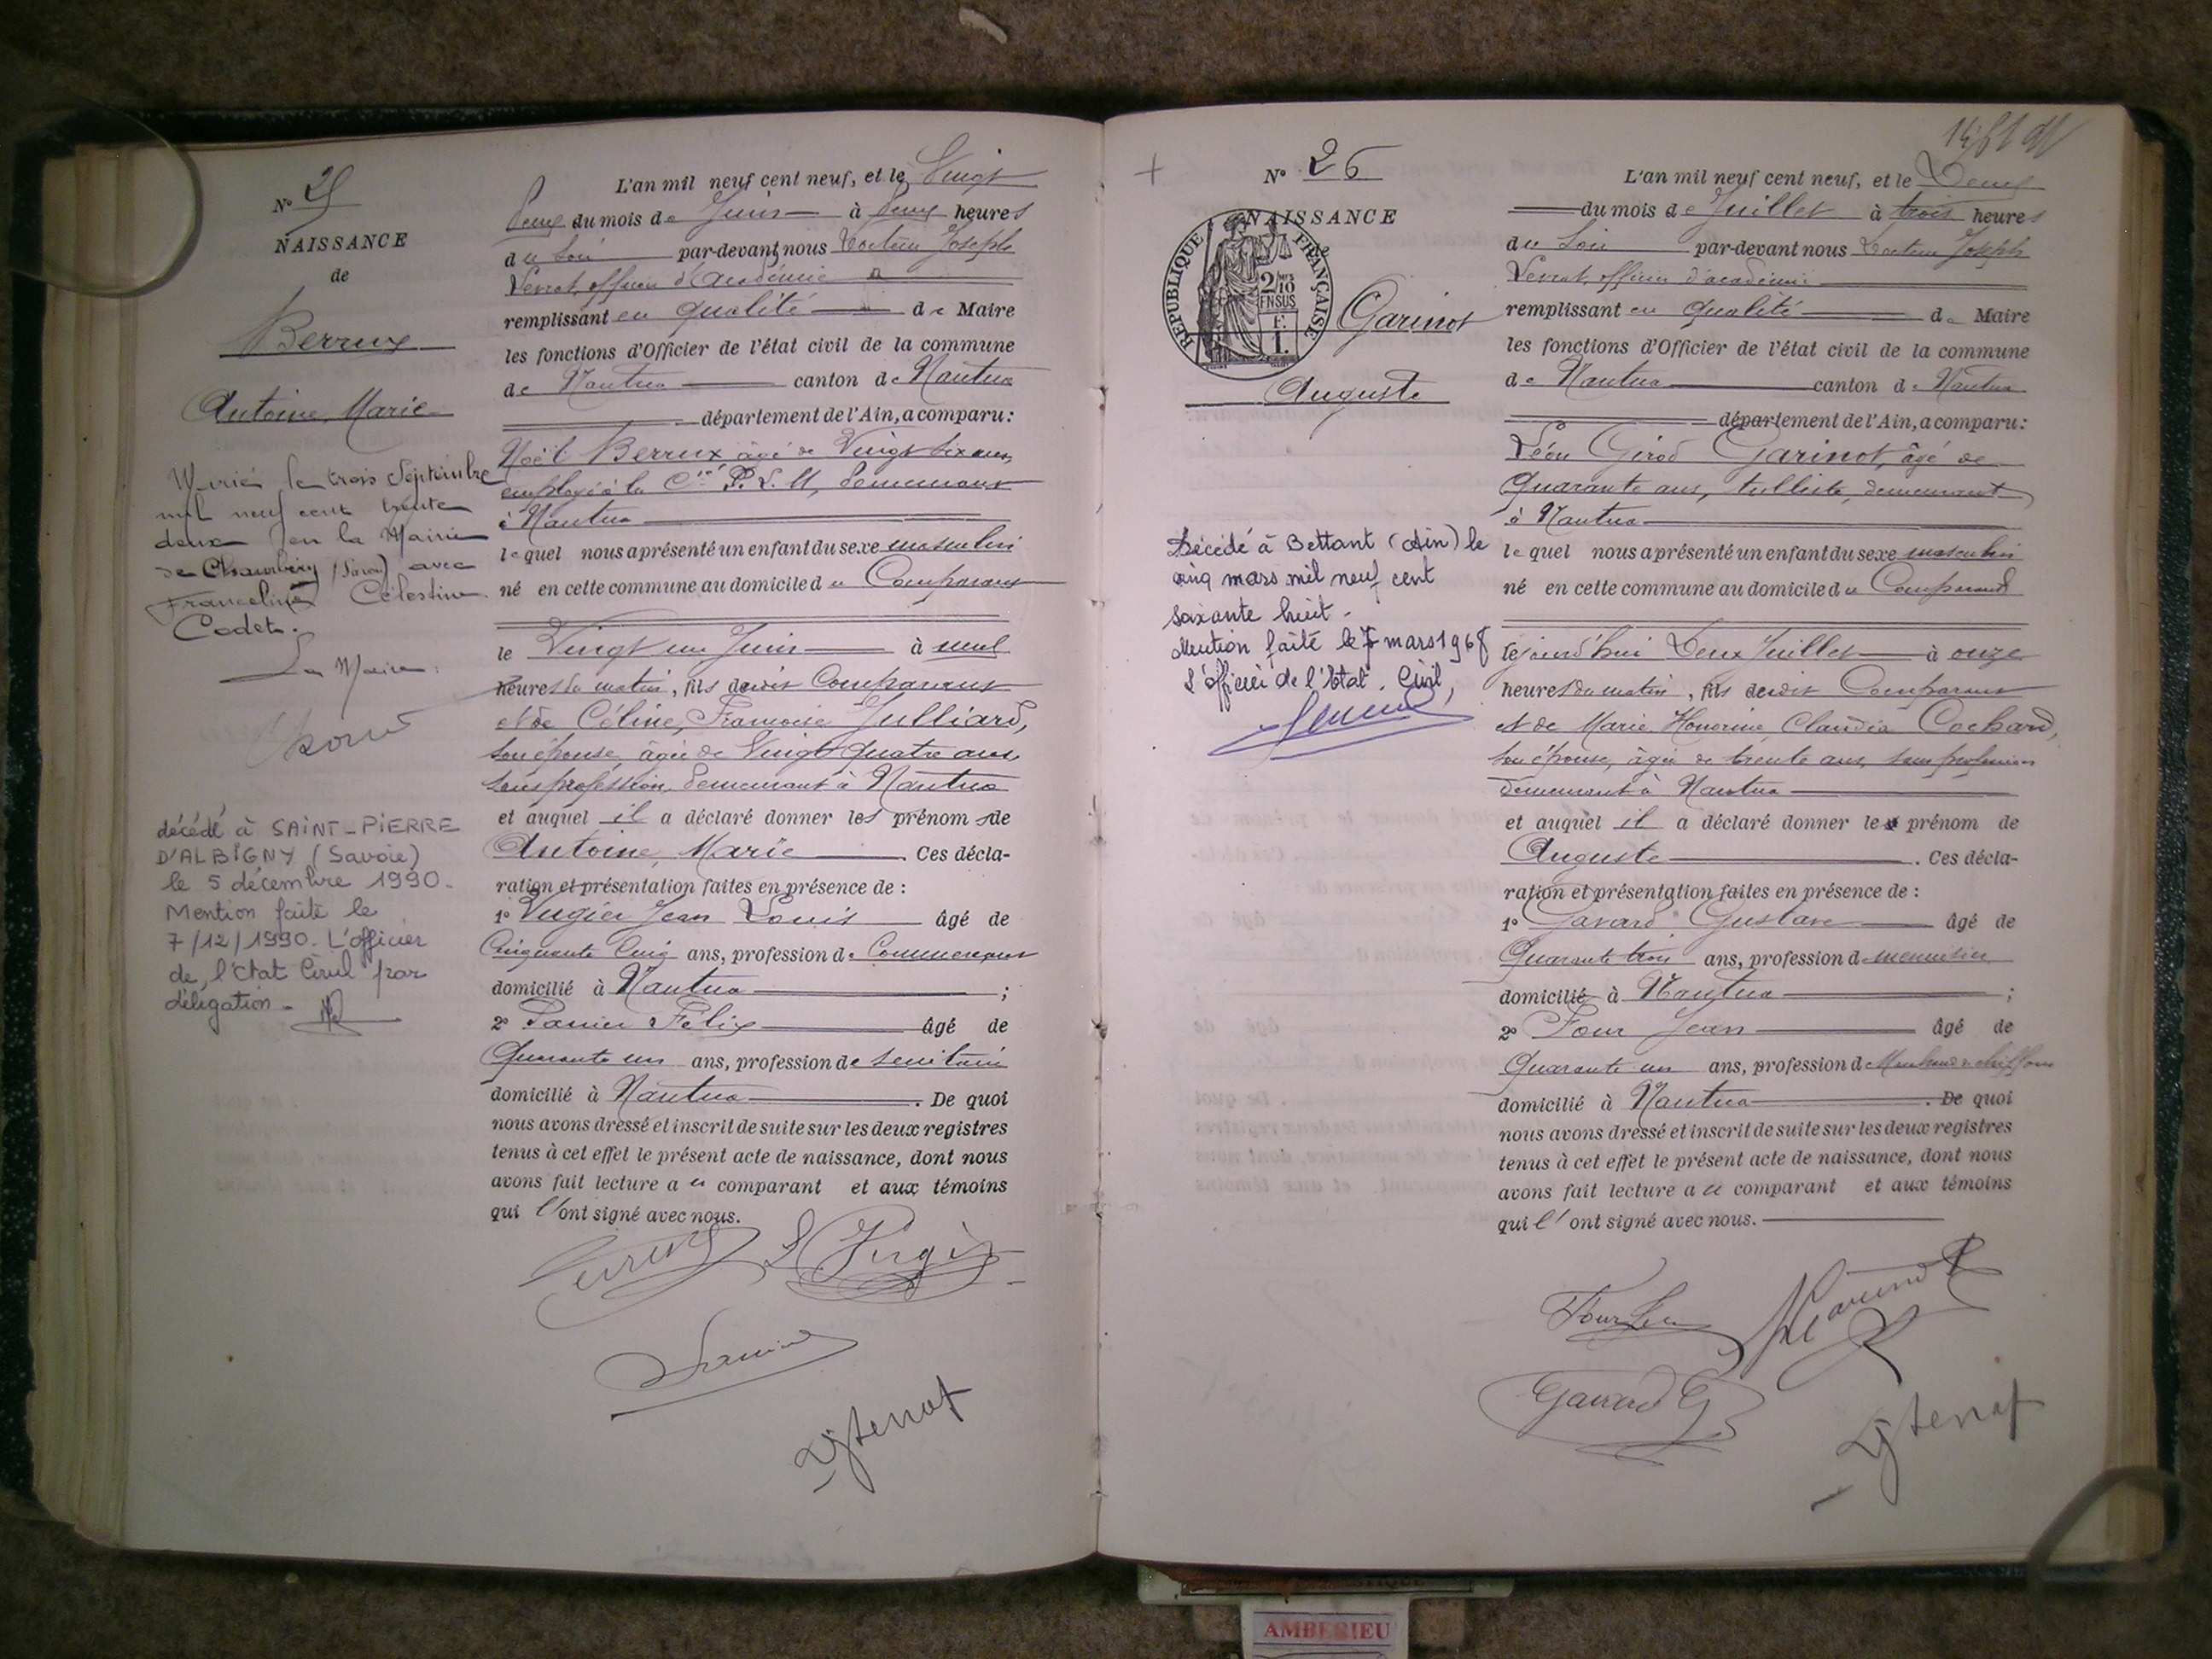 N° 25
NAISSANCE
de
Berrux
Antoine, Marie
Marié le trois Septembre
mil neuf cent trente
deux en la Mairie
de Chambéry (Savoie) avec
Franceline Célestine
Codet.
Le Maire :
décédé à SAINT-PIERRE
D'ALBIGNY (Savoie)
le 5 décembre 1990.
Mention faite le
7/12/1990. L'officier
de l'Etat Civil par
délégation -
L'an mil neuf cent neuf, et le Vingt
Deux du mois de Juin à deux heures
du Soir par-devant nous Docteur Joseph
officier d'académie
remplissant en qualité de Maire
les fonctions d'Officier de l'état civil de la commune
de Nantua canton de Nantua
département de l'Ain, a comparu :
Noël Berrux âgé de Vingt six ans,
employé à la Cie P. L. M, demeurant
à Nantua
lequel nous a présenté un enfant du sexe masculin
né en cette commune au domicile du Comparant
le Vingt un Juin à
heures du matin, fils dudit Comparant
et de Céline, Françoise Julliard,
son épouse, âgée de Vingt quatre ans,
sans profession, demeurant à Nantua
et auquel il a déclaré donner les prénoms de
Antoine, Marie . Ces décla-
ration et présentation faites en présence de :
1° Vugier Jean Louis âgé de
Cinquante Cinq ans, profession de Commerçant
domicilié à Nantua ;
2° Félix âgé de
Quarante un ans, profession de
domicilié à Nantua . De quoi
nous avons dressé et inscrit de suite sur les deux registres
tenus à cet effet le présent acte de naissance, dont nous
avons fait lecture au comparant et aux témoins
qui l'ont signé avec nous.
N° 26
NAISSANCE
RÉPUBLIQUE FRANÇAISE
2/10
EN SUS
Garinot
Auguste
Décédé à Bettant (Ain) le
cinq mars mil neuf cent
soixante huit -
Mention faite le 7 mars 1968
L'officier de l'Etat Civil,
L'an mil neuf cent neuf, et le Deux
du mois de Juillet à trois heures
du Soir par-devant nous Docteur Joseph
officier d'académie
remplissant en qualité de Maire
les fonctions d'Officier de l'état civil de la commune
de Nantua canton de Nantua
département de l'Ain, a comparu :
Léon Girod Garinot, âgé de
Quarante ans, tulliste, demeurant
à Nantua
lequel nous a présenté un enfant du sexe masculin
né en cette commune au domicile du Comparant
lejourd'hui Deux Juillet à onze
heures du matin, fils dudit Comparant
et de Marie Honorine, Claudia Cochard,
son épouse, âgée de trente ans, sans profession
demeurant à Nantua
et auquel il a déclaré donner le prénom de
Auguste . Ces décla-
ration et présentation faites en présence de :
1° Gavard Gustave âgé de
Quarante trois ans, profession de menuisier
domicilié à Nantua ;
2° Four Jean âgé de
Quarante un ans, profession de Marchand de chiffons
domicilié à Nantua . De quoi
nous avons dressé et inscrit de suite sur les deux registres
tenus à cet effet le présent acte de naissance, dont nous
avons fait lecture au comparant et aux témoins
qui l'ont signé avec nous.
Gavard G
AMBERIEU